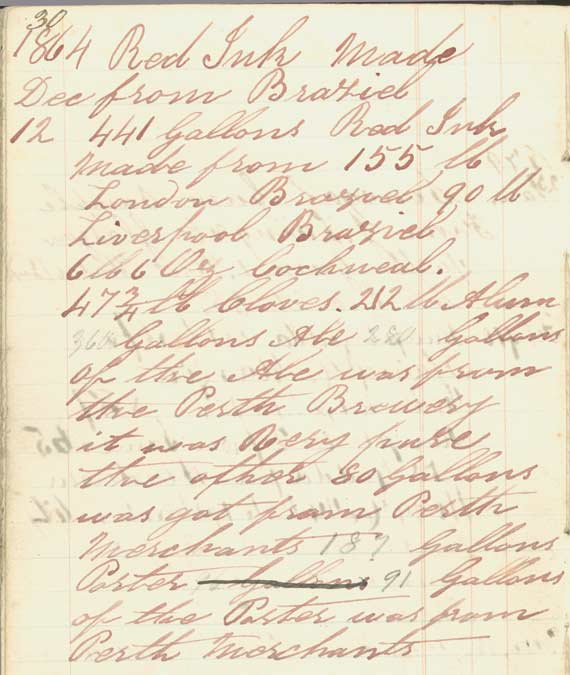 30
1864 Red Ink Made
Dec from Braziel
12 441 Gallons Red Ink
Made from 155 lb
London Braziel 90 lb
Liverpool Braziel
6 lb 6 Oz Cochneal.
47 3/4 lb Cloves. 212 lb Alum
360 Gallons Ale 280 Gallons
of the Ale was from
the Perth Brewery
it was Very pure
the other 80 Gallons
was got from Perth
Merchants 187 Gallons
Porter 91 Gallons
of the Porter was from
Perth Merchants